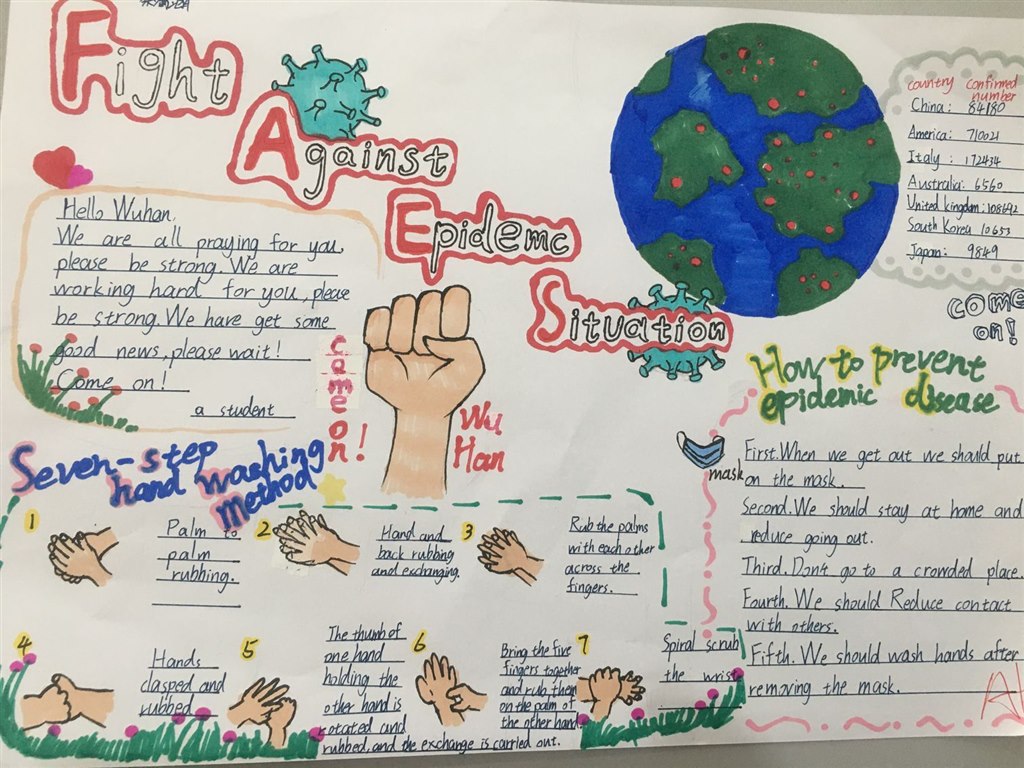 Fight
Against
Epidemc
Situation
country confirmed
number
China: 84180
America: 710021
Italy: 172434
Australia: 6560
United kingdom: 108692
South Korea 10653
Japan: 9849
come
on!
Hello Wuhan,
We are all praying for you,
please be strong. We are
working hard for you, please
be strong. We have get some
good news, please wait!
Come on!
a student
cameon!
Wu
Han
Seven-step
hand washing
method
1
Palm to
palm
rubbing.
2
Hand and
back rubbing
and exchanging.
3
Rub the palms
with each other
across the
fingers.
4
Hands
clasped and
rubbed
5
The thumb of
one hand
holding the
other hand is
rotated and
rubbed, and the exchange is carried out.
6
Bring the five
fingers together
and rub them
on the palm of
the other hand
7
Spiral scrub
the wrist
How to prevent
epidemic disease
mask
First. When we get out we should put
on the mask.
Second. We should stay at home and
reduce going out.
Third. Don't go to a crowded place.
Fourth. We should Reduce contact
with others.
Fifth. We should wash hands after
removing the mask.